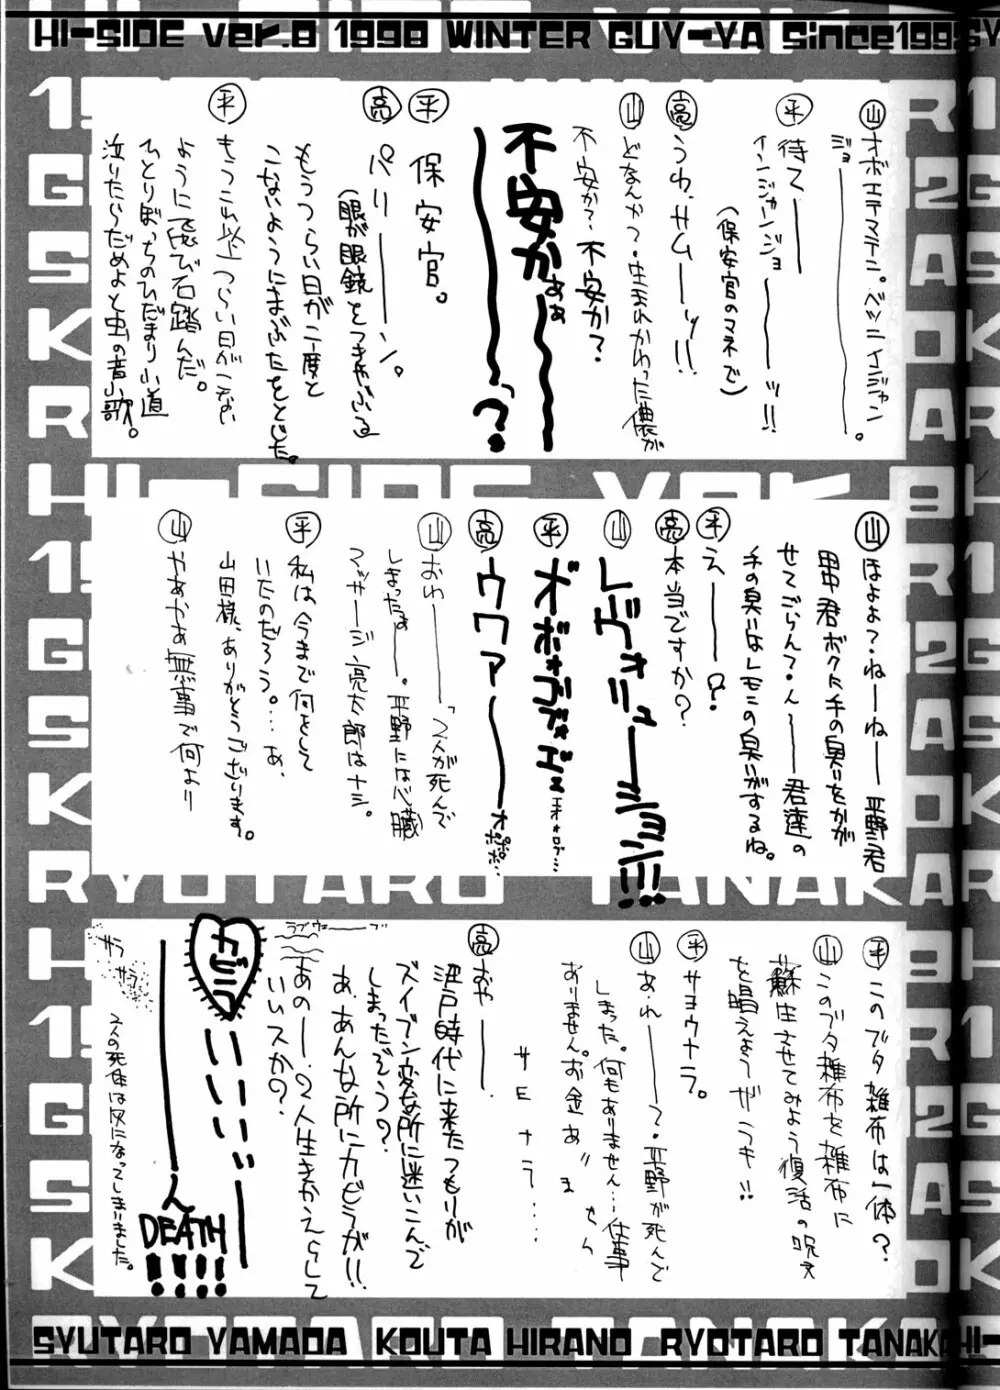 HI-SIDE ver.8 1998 WINTER GUY-YA Since199
山 オボエテマテニ。ベツニイイジャン
ジョ———。
平 待て——
インジャーンジョ———ッ!!
(保安官のマネで)
亮 うわ、サム——ッ!!
山 どなんか?・生まれかわった儂が
不安か?不安か?
不安かぁぁ〜〜〜
〜〜〜っ?
平 保安官。
亮 パリ———ン。
(眼が眼鏡をつきやぶる)
もうつらい日が二度と
こないようにまぶたをとじた。
平 もうこれ以上つらい日がこない
ように飛び石踏んだ。
ひとりぼっちのひだまり小道
泣いたらだめよと虫の音小歌。
山 ほよよ?・ねーねー 平野君
田中君ボクに手の臭いをかが
せてごらん?・ん〜——君達の
手の臭いはレモンの臭いがするね。
平 え——?
亮 本当ですか?
山 レヴォリューーション!!!
平 オボォゲヴォゲェ
亮 ウワァ———オポポポポ…
山 おわ———「2人が死んで
しまったぁ——。平野には心臓
マッサージ、亮太郎はナシ。
平 私は今まで何をして
いたのだろう。…あ、
山田様、ありがとうございます。
山 やあやあ無事で何より
平 このブタ雑布は一体?
山 このブタ雑布を雑布に
蘇生させてみよう復活の呪文
を唱えようがっキ!!
平 サヨウナラ。
山 あれ——?・平野が死んで
しまった。何もありません…仕事
ありません。お金あ"ま せら
サ E ナ ラ …
亮 おや——.
江戸時代に来たつもりが
ズイブン変な所に迷いこんで
しまったぞう?
あ、あんな所にカビラが!!
あのー、2人生きかえらして
いいスか?
ラブウェーーブ
ん
DEATH
!!!!
サラ サラ
2人の死体は灰になってしまいました。
SYUTARO YAMADA KOUTA HIRANO RYOTARO TANAKA HI-